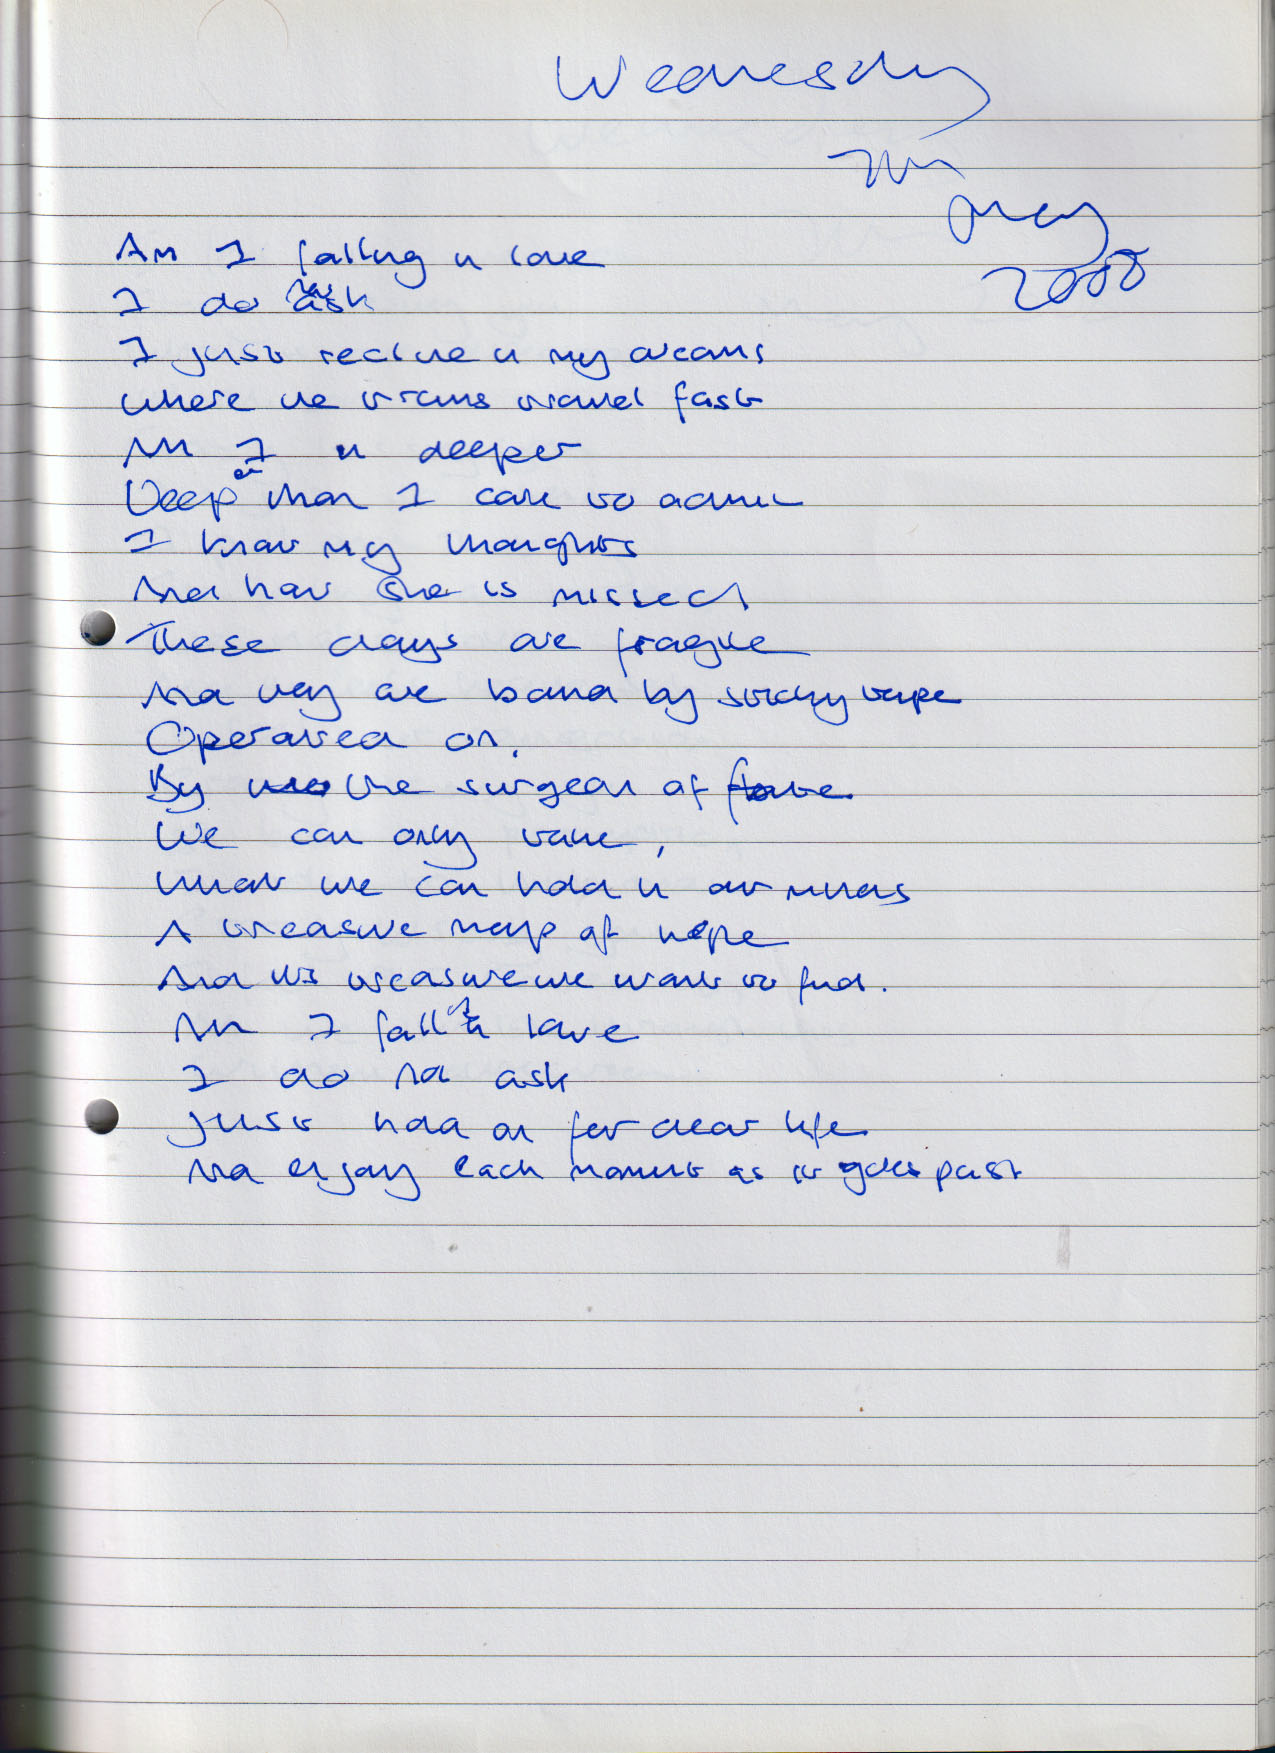 Wednesday
7th
May
2008
Am I falling in love
I do not ask
I just recline in my dreams
Where the trains travel fast
Am I in deeper
Deeper than I care to admit
I know my thoughts
And how she is missed
These days are fragile
And they are bound by sticky tape
Operated on,
By the surgeon of
We can only take,
What we can hold in our minds
A treasure map of hope
And the treasure we want to find.
Am I falling in love
I do not ask
Just hold on for dear life
And enjoy each moment as it goes past